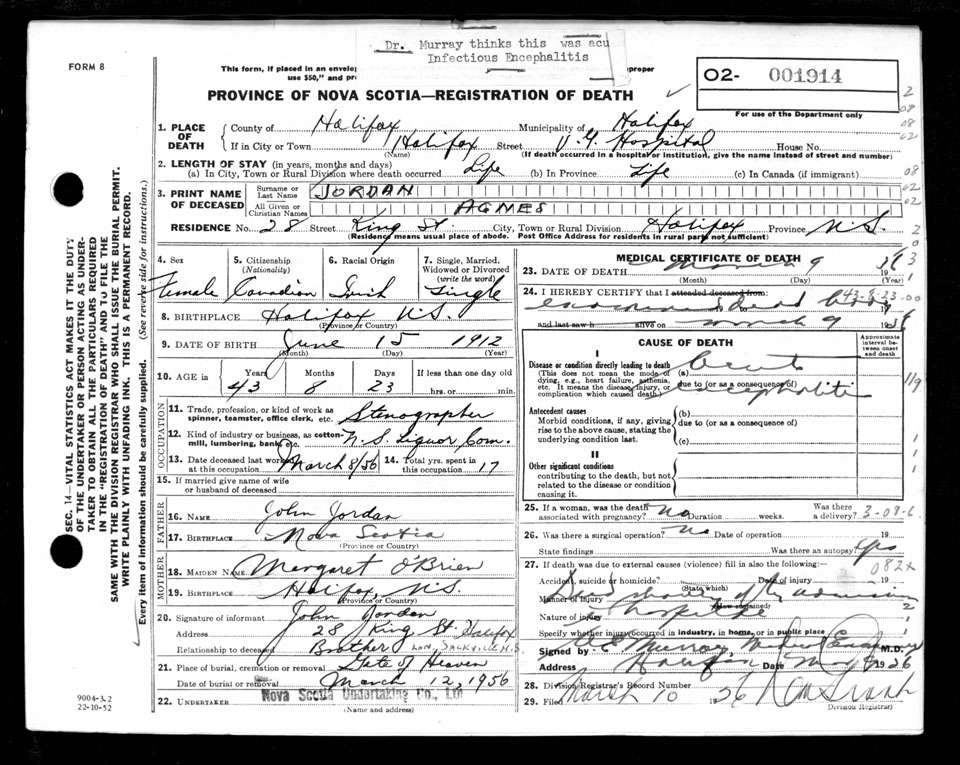 Dr. Murray thinks this was acu
Infectious Encephalitis
FORM 8
This form, if placed in an envelop
roper
use $50," and pr
O2- 001914
For use of the Department only
PROVINCE OF NOVA SCOTIA—REGISTRATION OF DEATH
1. PLACE OF DEATH
County of Halifax Municipality of Halifax
If in City or Town Halifax Street V.G. Hospital House No.
(Name) (If death occurred in a hospital or institution, give the name instead of street and number)
2. LENGTH OF STAY (in years, months and days)
(a) In City, Town or Rural Division where death occurred Life (b) In Province Life (c) In Canada (if immigrant)
3. PRINT NAME OF DECEASED
Surname or Last Name JORDAN
All Given or Christian Names AGNES
RESIDENCE No. 28 Street King St. City, Town or Rural Division Halifax Province N.S.
(Residency means usual place of abode. Post Office Address for residents in rural parts not sufficient)
4. Sex Female
5. Citizenship (Nationality) Canadian
6. Racial Origin Irish
7. Single, Married, Widowed or Divorced (write the word) Single
8. BIRTHPLACE Halifax N.S.
(Province or Country)
9. DATE OF BIRTH June 15 1912
(Month) (Day) (Year)
10. AGE in Years 43 Months 8 Days 23 If less than one day old
hrs. or min.
OCCUPATION
11. Trade, profession, or kind of work as spinner, teamster, office clerk, etc. Stenographer
12. Kind of industry or business, as cotton-mill, lumbering, bank, etc. N.S. Liquor Com.
13. Date deceased last worked at this occupation March 8/56
14. Total yrs. spent in this occupation 17
15. If married give name of wife or husband of deceased
FATHER
16. NAME John Jordan
17. BIRTHPLACE Nova Scotia
(Province or Country)
MOTHER
18. MAIDEN NAME Margaret O'Brien
19. BIRTHPLACE Halifax, N.S.
(Province or Country)
20. Signature of informant John Jordan
Address 28 King St. Halifax
Relationship to deceased Brother Low. Sackville N.S.
21. Place of burial, cremation or removal Gate of Heaven
Date of burial or removal March 12, 1956
22. UNDERTAKER Nova Scotia Undertaking Co., Ltd
(Name and address)
MEDICAL CERTIFICATE OF DEATH
23. DATE OF DEATH March 9 19
(Month) (Day) (Year)
24. I HEREBY CERTIFY that I attended deceased from:
and last saw h alive on March 9 19
CAUSE OF DEATH
Approximate interval between onset and death
I
Disease or condition directly leading to death
(This does not mean the mode of dying, e.g., heart failure, asthenia, etc. It means the disease, injury, or complication which caused death.)
(a) acute
due to (or as a consequence of)
encephalitis
Antecedent causes
Morbid conditions, if any, giving rise to the above cause, stating the underlying condition last.
(b)
due to (or as a consequence of)
(c)
II
Other significant conditions
contributing to the death, but not related to the disease or condition causing it.
25. If a woman, was the death associated with pregnancy? no Duration weeks. Was there a delivery?
26. Was there a surgical operation? no Date of operation 19
State findings Was there an autopsy? Yes
27. If death was due to external causes (violence) fill in also the following:
Accident, suicide or homicide? Date of injury 19
(State which)
Manner of injury
(How sustained)
Nature of injury
Specify whether injury occurred in industry, in home, or in public place
Signed by Murray, M.D.
Address Halifax Date 1956
28. Division Registrar's Record Number
29. Filed March 10 1956
Division Registrar
SEC. 14—VITAL STATISTICS ACT MAKES IT THE DUTY
OF THE UNDERTAKER OR PERSON ACTING AS UNDER-
TAKER TO OBTAIN ALL THE PARTICULARS REQUIRED
IN THE "REGISTRATION OF DEATH" AND TO FILE THE
SAME WITH THE DIVISION REGISTRAR WHO SHALL ISSUE THE BURIAL PERMIT.
WRITE PLAINLY WITH UNFADING INK. THIS IS A PERMANENT RECORD.
Every item of information should be carefully supplied. (See reverse side for instructions.)
9004-3.2
22-10-52